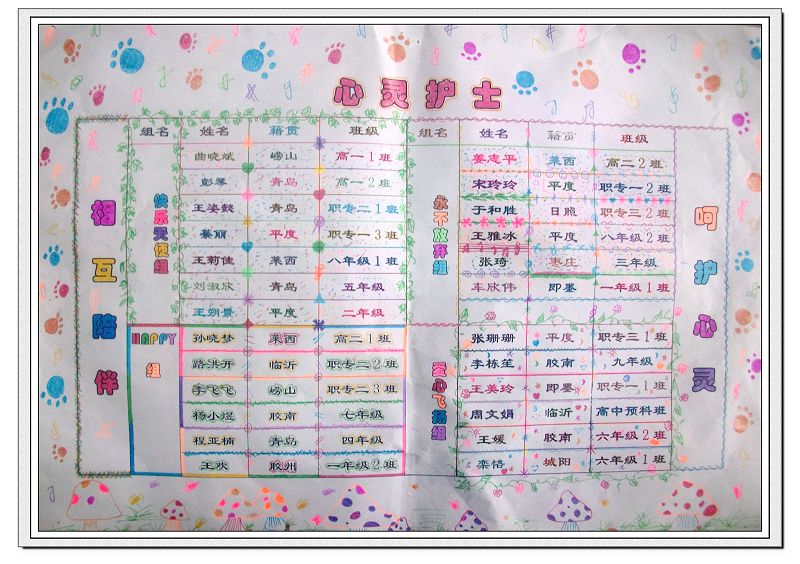 心灵护士
组名 姓名 籍贯 班级
曲晓斌 崂山 高一1班
彭琴 青岛 高一2班
王姿懿 青岛 职专二1班
綦丽 平度 职专一3班
王莉佳 莱西 八年级1班
刘淑欣 青岛 五年级
王朔景 平度 二年级
快乐天使组
孙晓梦 莱西 高二1班
路洪开 临沂 职专三2班
李飞飞 崂山 职专二3班
杨小煜 胶南 七年级
程亚楠 青岛 四年级
王欢 胶州 一年级2班
HAPPY
组
组名 姓名 籍贯 班级
姜志平 莱西 高二2班
宋玲玲 平度 职专一2班
于和胜 日照 职专三2班
王雅冰 平度 八年级2班
张琦 枣庄 三年级
车欣伟 即墨 一年级1班
永不放弃组
张珊珊 平度 职专三1班
李栋笙 胶南 九年级
王美玲 即墨 职专一1班
周文娟 临沂 高中预科班
王媛 胶南 六年级2班
栾恪 城阳 六年级1班
爱心飞扬组
相互陪伴
呵护心灵